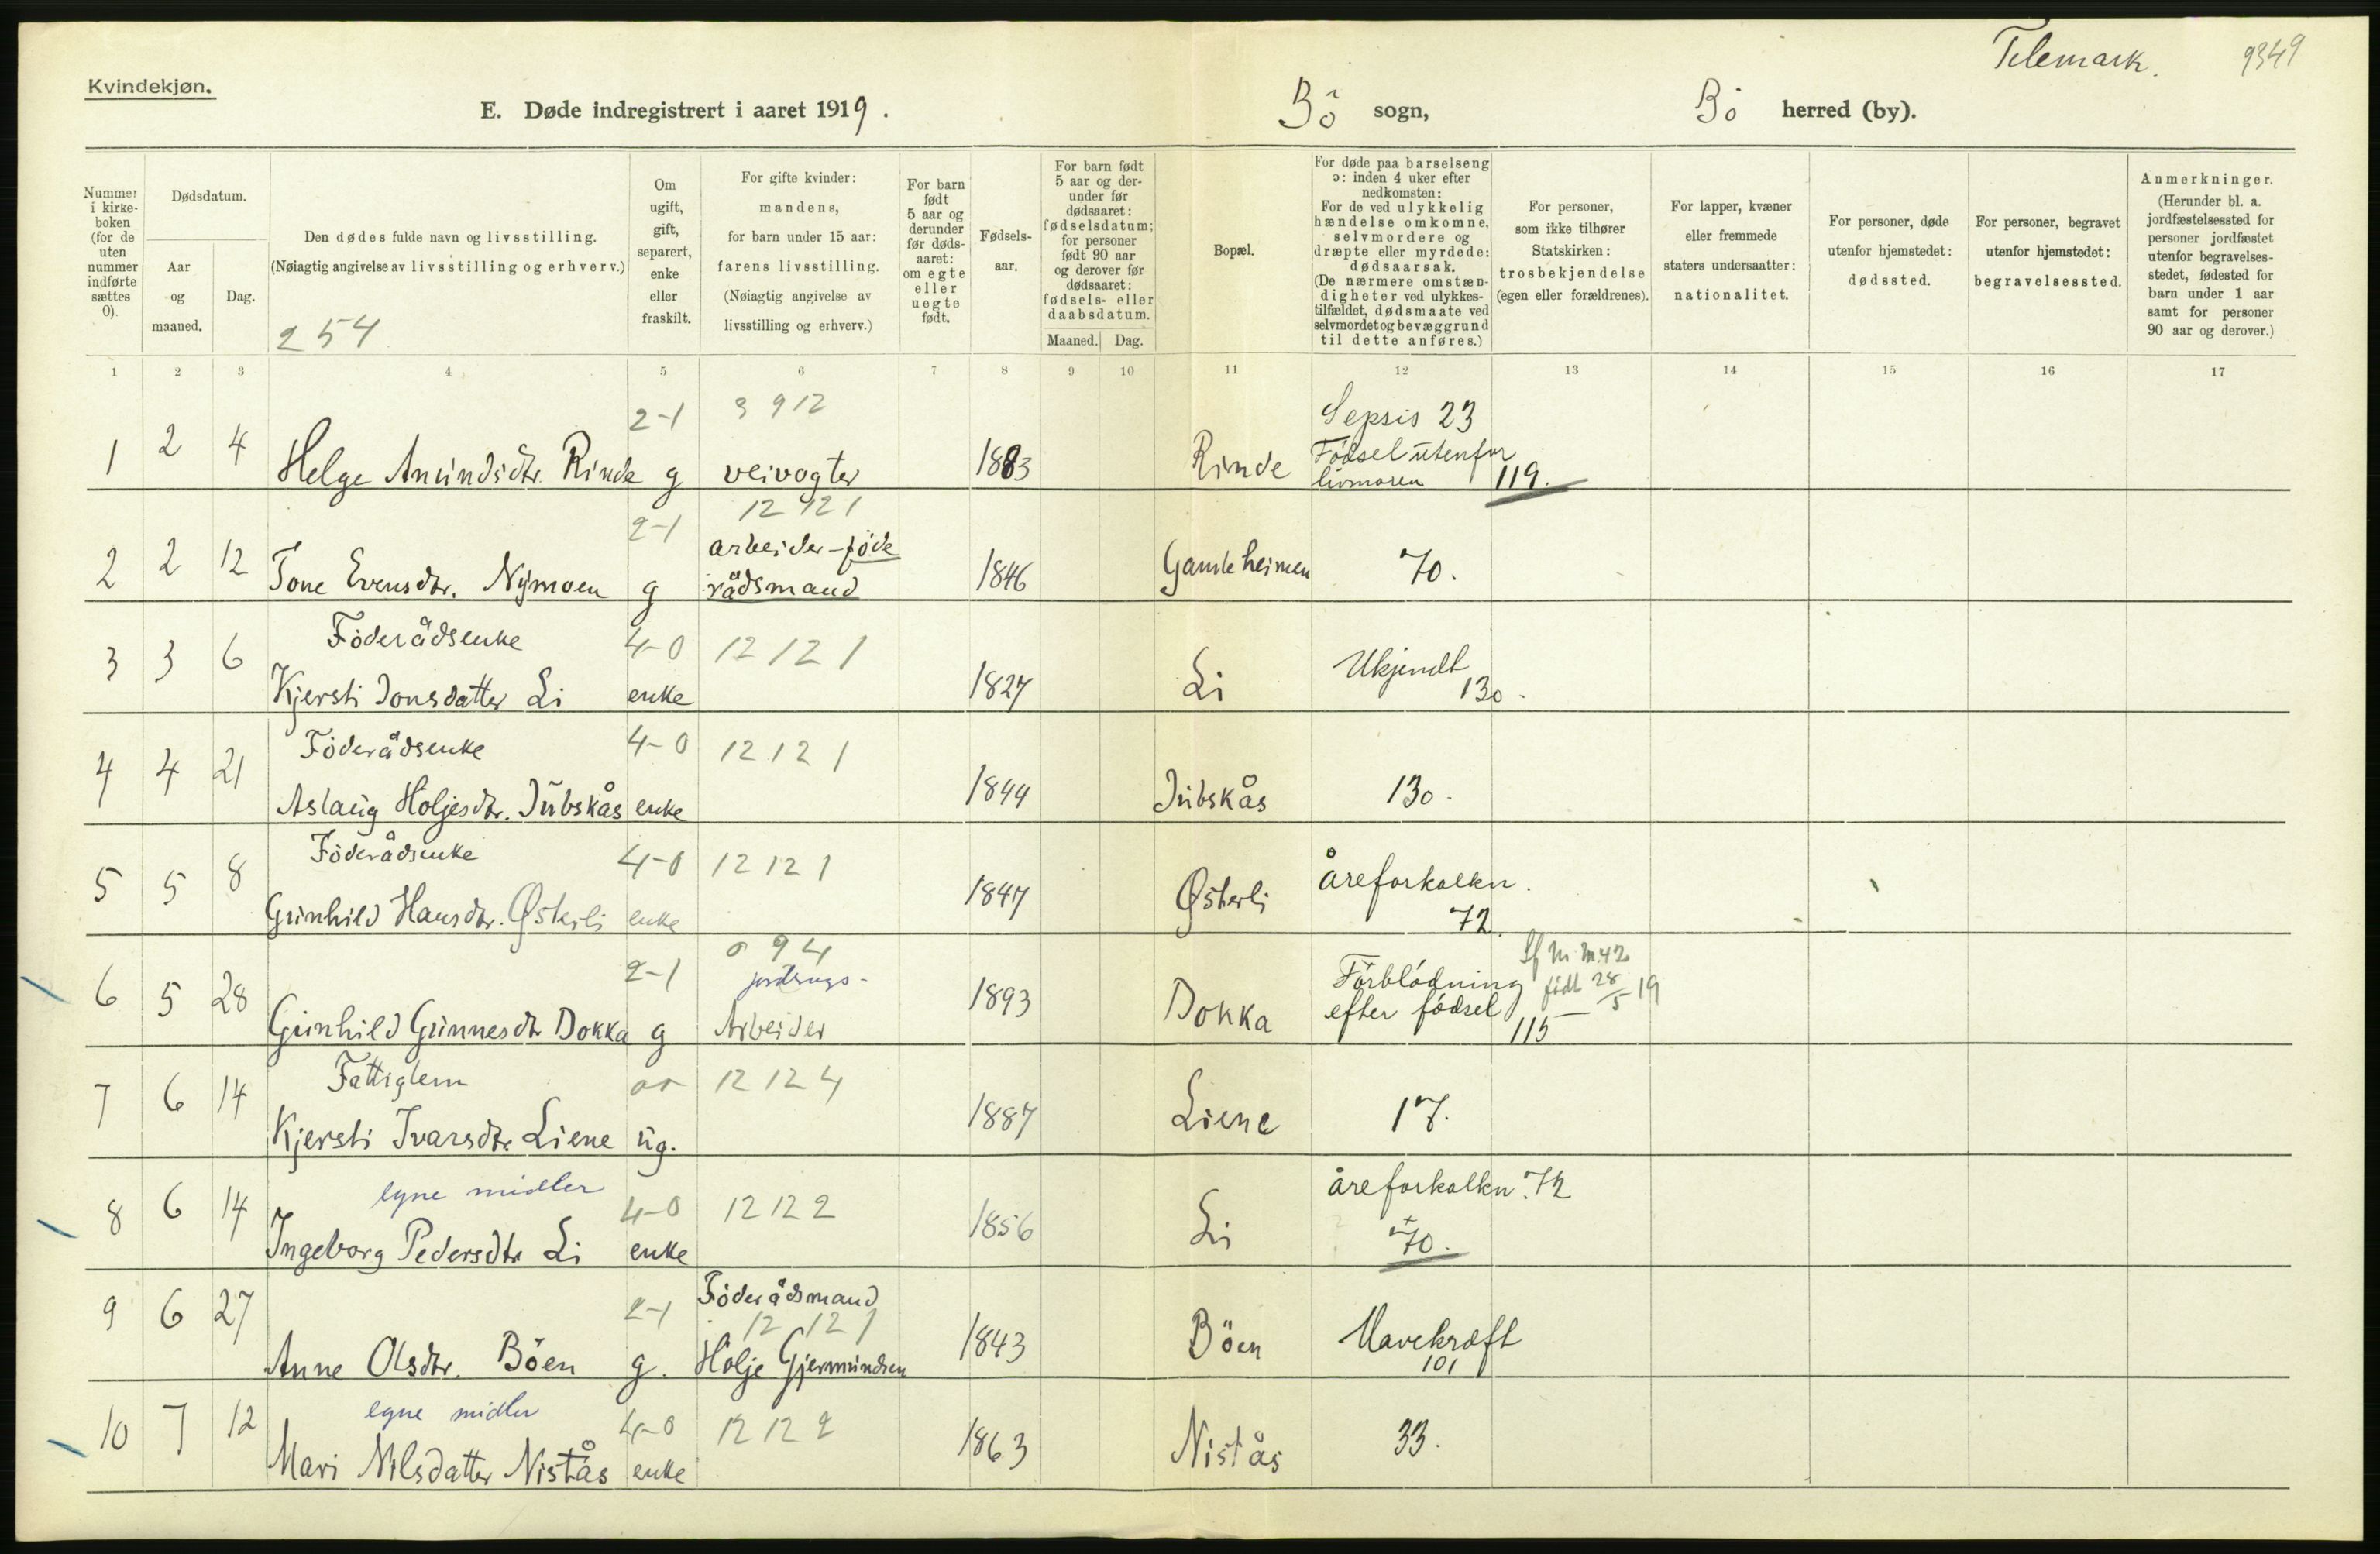 Telemark. 9349
Kvindekjøn.
E. Døde indregistrert i aaret 1919. Bö sogn, Bö herred (by).
Nummer i kirkeboken (for de uten nummer indførte sættes 0).
Dødsdatum.
Aar og maaned.
Dag.
Den dødes fulde navn og livsstilling.
(Nøiagtig angivelse av livsstilling og erhverv.)
254
Om ugift, gift, separert, enke eller fraskilt.
For gifte kvinder: mandens, for barn under 15 aar: farens livsstilling. (Nøiagtig angivelse av livsstilling og erhverv.)
For barn født 5 aar og derunder før dødsaaret: om egte eller uegte født.
Fødselsaar.
For barn født 5 aar og derunder før dødsaaret: fødselsdatum; for personer født 90 aar og derover før dødsaaret: fødsels- eller daabsdatum.
Maaned. Dag.
Bopæl.
For døde paa barselseng ɔ: inden 4 uker efter nedkomsten: For de ved ulykkelig hændelse omkomne, selvmordere og dræpte eller myrdede: dødsaarsak. (De nærmere omstændigheter ved ulykkestilfældet, dødsmaate ved selvmordet og bevæggrund til dette anføres.)
For personer, som ikke tilhører Statskirken: trosbekjendelse (egen eller forældrenes).
For lapper, kvæner eller fremmede staters undersaatter: nationalitet.
For personer, døde utenfor hjemstedet: dødssted.
For personer, begravet utenfor hjemstedet: begravelsessted.
Anmerkninger. (Herunder bl. a. jordfæstelsessted for personer jordfæstet utenfor begravelsesstedet, fødested for barn under 1 aar samt for personer 90 aar og derover.)
1 2 3 4 5 6 7 8 9 10 11 12 13 14 15 16 17
2-1 3 912 Sepsis 23
1 2 4 Helge Anundsdtr. Rinde g veivogter 1883 Rinde Födsel utenfor
livmoren 119.
2-1 12 421
arbeider-föde
2 2 12 Tone Evensdtr. Nymoen g rådsmand 1846 Gamleheimen 70.
Föderådsenke 4-0 12 12 1
3 3 6 Kjersti Jonsdatter Li enke 1827 Li Ukjendt
130.
Föderådsenke 4-0 12 12 1
4 4 21 Aslaug Holjesdtr. Jubskås enke 1844 Jubskås 130.
Föderådsenke 4-0 12 12 1
5 5 8 Gunhild Hansdtr. Østerli enke 1847 Østerli åreforkalkn.
72.
2-1 0 94
jordbrugs-
6 5 28 Gunhild Gunnesdtr Dokka g Arbeider 1893 Dokka Forblödning
efter födsel
115
m. 42
födt 28/5 19
Fattiglem 12 12 4
7 6 14 Kjersti Ivarsdtr. Liene ug. 1887 Liene 17.
egne midler 4-0 12 12 2
8 6 14 Ingeborg Pedersdtr Li enke 1856 Li åreforkalkn. 72
70.
2-1 Föderådsmand
12 12 1
9 6 27 Anne Olsdtr. Böen g. Holje Gjermundsen 1843 Böen Mavekræft
101
egne midler 4-0 12 12 2
10 7 12 Mari Nilsdatter Nistås enke 1863 Nistås 33.